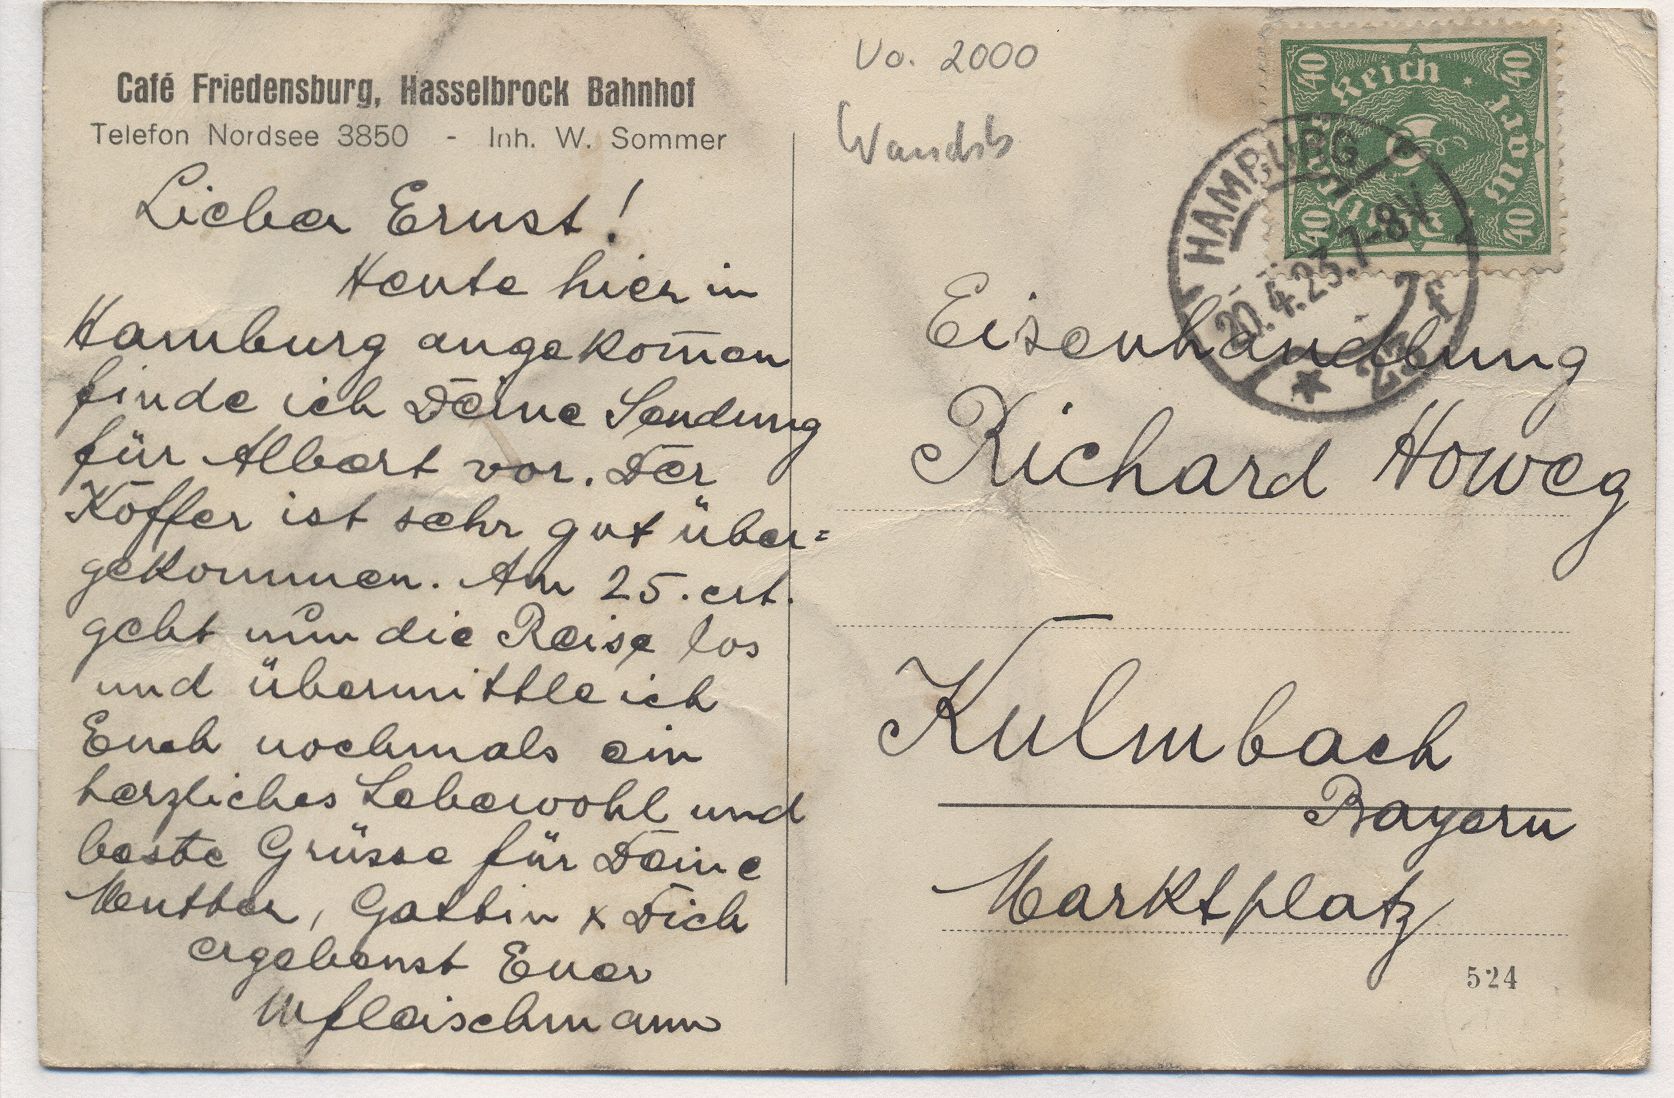 Café Friedensburg, Hasselbrock Bahnhof
Telefon Nordsee 3850 - Inh. W. Sommer
Lieber Ernst!
Heute hier in
Hamburg angekom̅en
finde ich Deine Sendung
für Albert vor. Der
Koffer ist sehr gut über=
gekommen. Am 25. crt.
geht nun die Reise los
und übermittle ich
Euch nochmals ein
herzliches Lebewohl und
beste Grüsse für Deine
Mutter, Gattin & Dich
ergebenst Euer
MFleischmann
Vo. 2000
Wandsb
Deutsches Reich
40 40 40 40
Mark
HAMBURG
20.4.23.7-8V
* 23 f
Eisenhandlung
Richard Howeg
Kulmbach
Bayern
Marktplatz
524